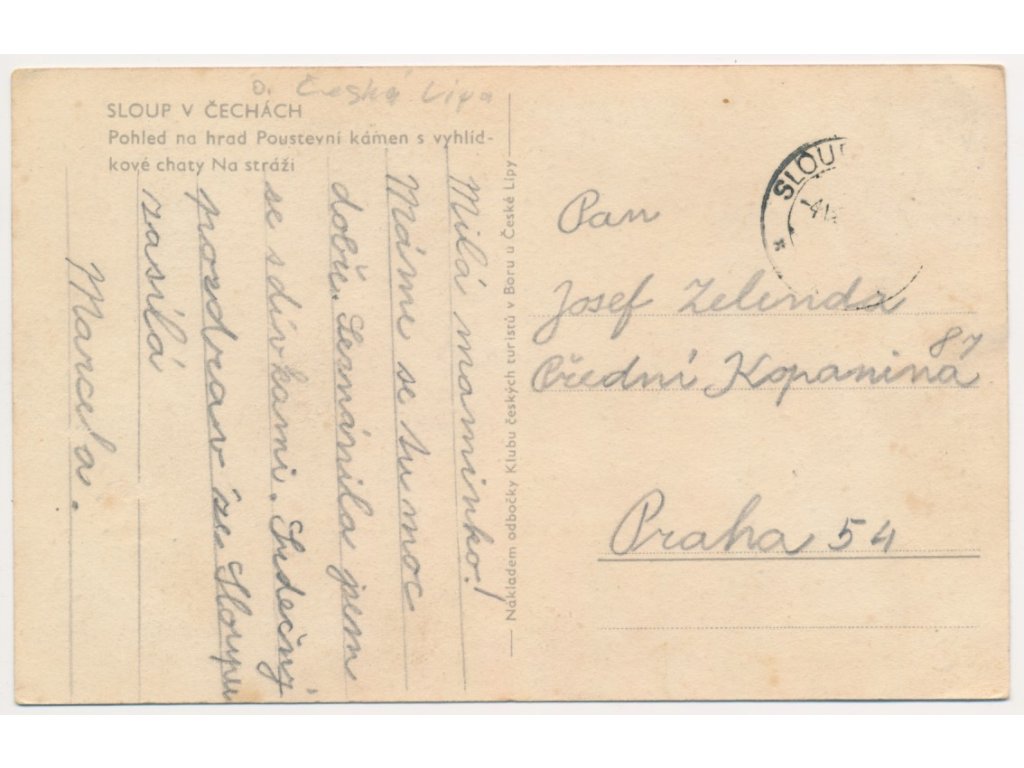 o. Česká Lípa
SLOUP V ČECHÁCH
Pohled na hrad Poustevní kámen s vyhlíd-
kové chaty Na stráži
Milá maminko!
Máme se tu moc
dobře. Seznámila jsem
se s dívkami. Srdečný
pozdrav ze Sloupu
zasílá
Marcela.
Nákladem odbočky Klubu českých turistů v Boru u České Lípy
SLOUP
Pan
Josef Zelinda
87
Přední Kopanina
Praha 54